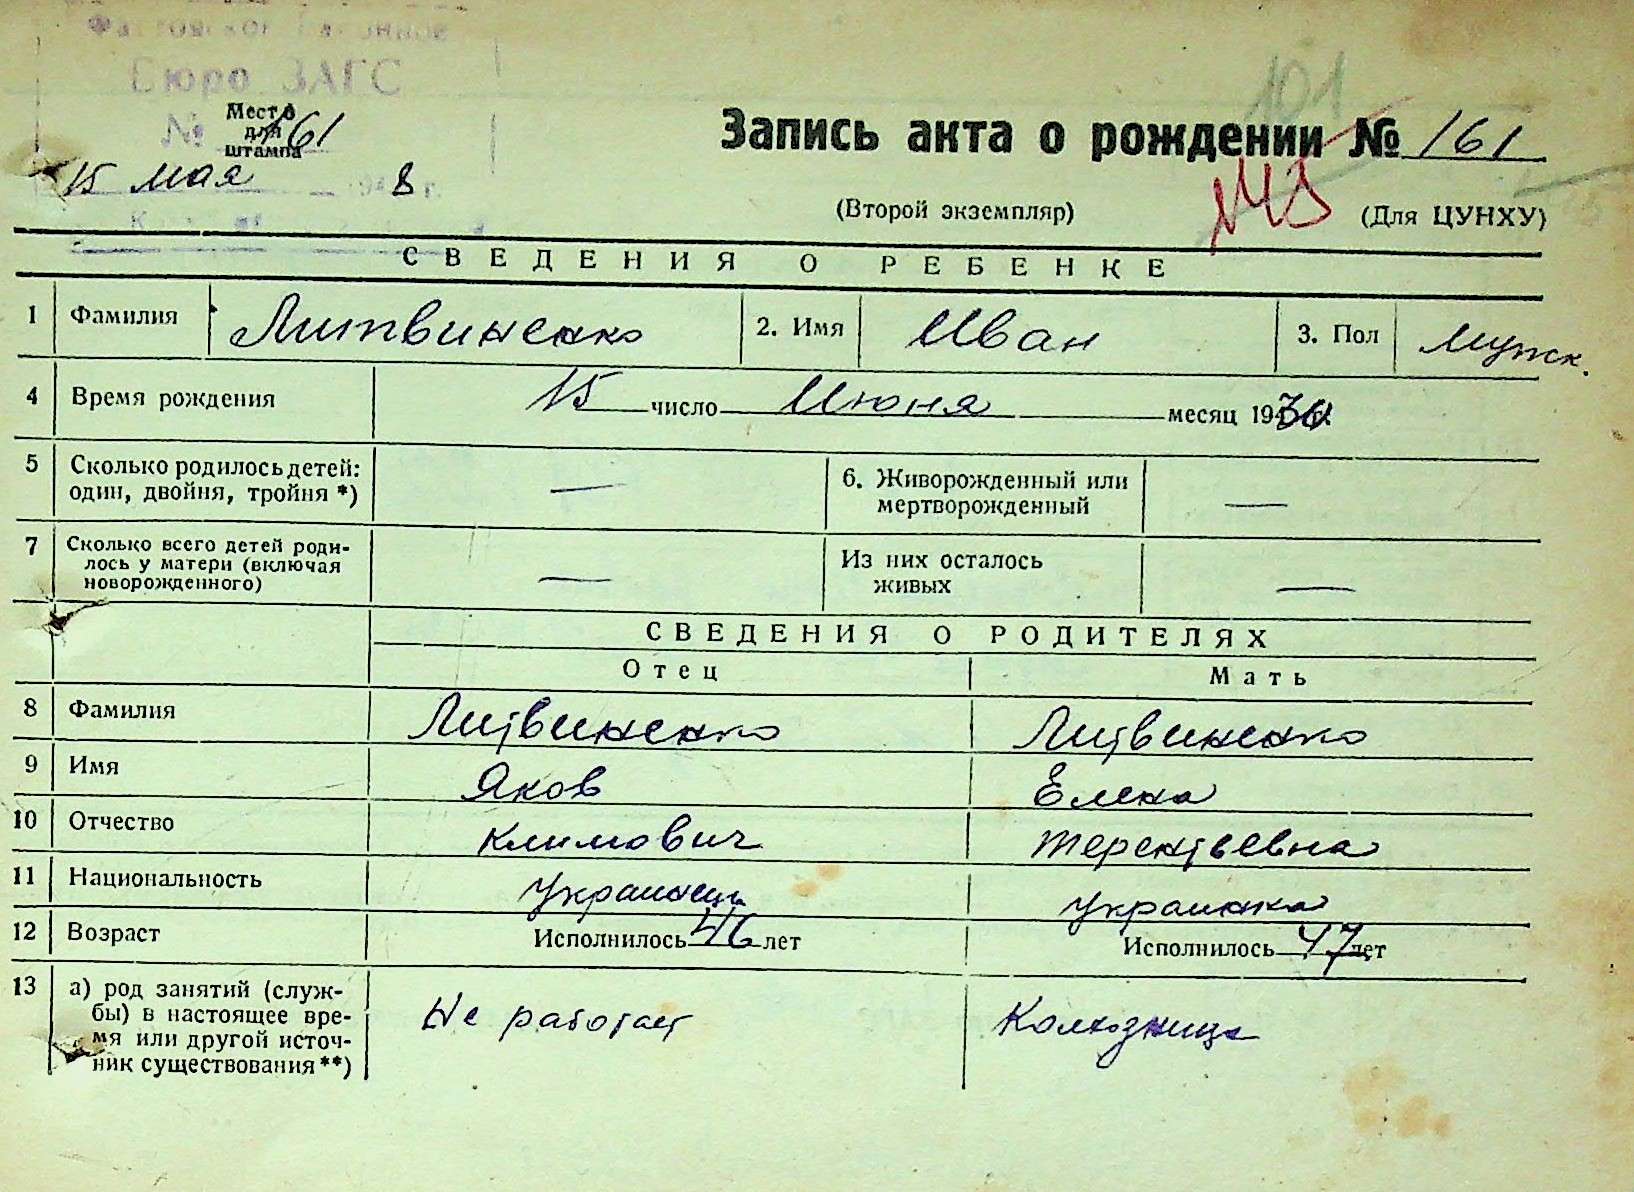 Бюро ЗАГС
Место для штампа
№ 161
15 мая 194 8 г.
101
Запись акта о рождении № 161
(Второй экземпляр) (Для ЦУНХУ)
СВЕДЕНИЯ О РЕБЕНКЕ
1 Фамилия Литвиненко 2. Имя Иван 3. Пол Мужск.
4 Время рождения 15 число Июня месяц 1930 г.
5 Сколько родилось детей: один, двойня, тройня *) — 6. Живорожденный или мертворожденный —
7 Сколько всего детей роди-
лось у матери (включая
новорожденного) — Из них осталось живых —
СВЕДЕНИЯ О РОДИТЕЛЯХ
Отец Мать
8 Фамилия Литвиненко Литвиненко
9 Имя Яков Елена
10 Отчество Климович Терентьевна
11 Национальность Украинец Украинка
12 Возраст Исполнилось 46 лет Исполнилось 47 лет
13 а) род занятий (служ-
бы) в настоящее вре-
мя или другой источ-
ник существования **) Не работает Колхозница